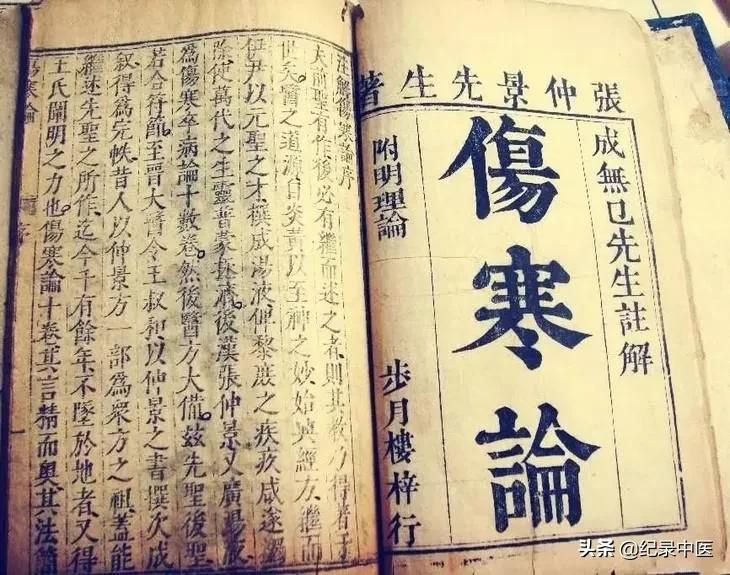 張仲景先生著
成無已先生註解
傷寒論
附明理論
步月樓梓行
注解傷寒論序
夫前聖有作後必有繼而述之者則其教乃得著于
世矣。醫之道源自炎黃以至神之妙始興經方繼而
伊尹以元聖之才撰成湯液俾黎庶之疾疚咸遂蠲
除使萬代之生靈普蒙拯濟。後漢張仲景又廣湯液
為傷寒卒病論十數卷。然後醫方大備。茲先聖後聖
若合符節。至晉大醫令王叔和以仲景之書撰次成
敘得為完帙昔人以仲景方一部為衆方之祖蓋能
繼述先聖之所作迄今千有餘年不墜於地者又得
王氏闡明之力也。傷寒論十卷其言精而奧其法簡
傷寒論 序
头条 @纪录中医